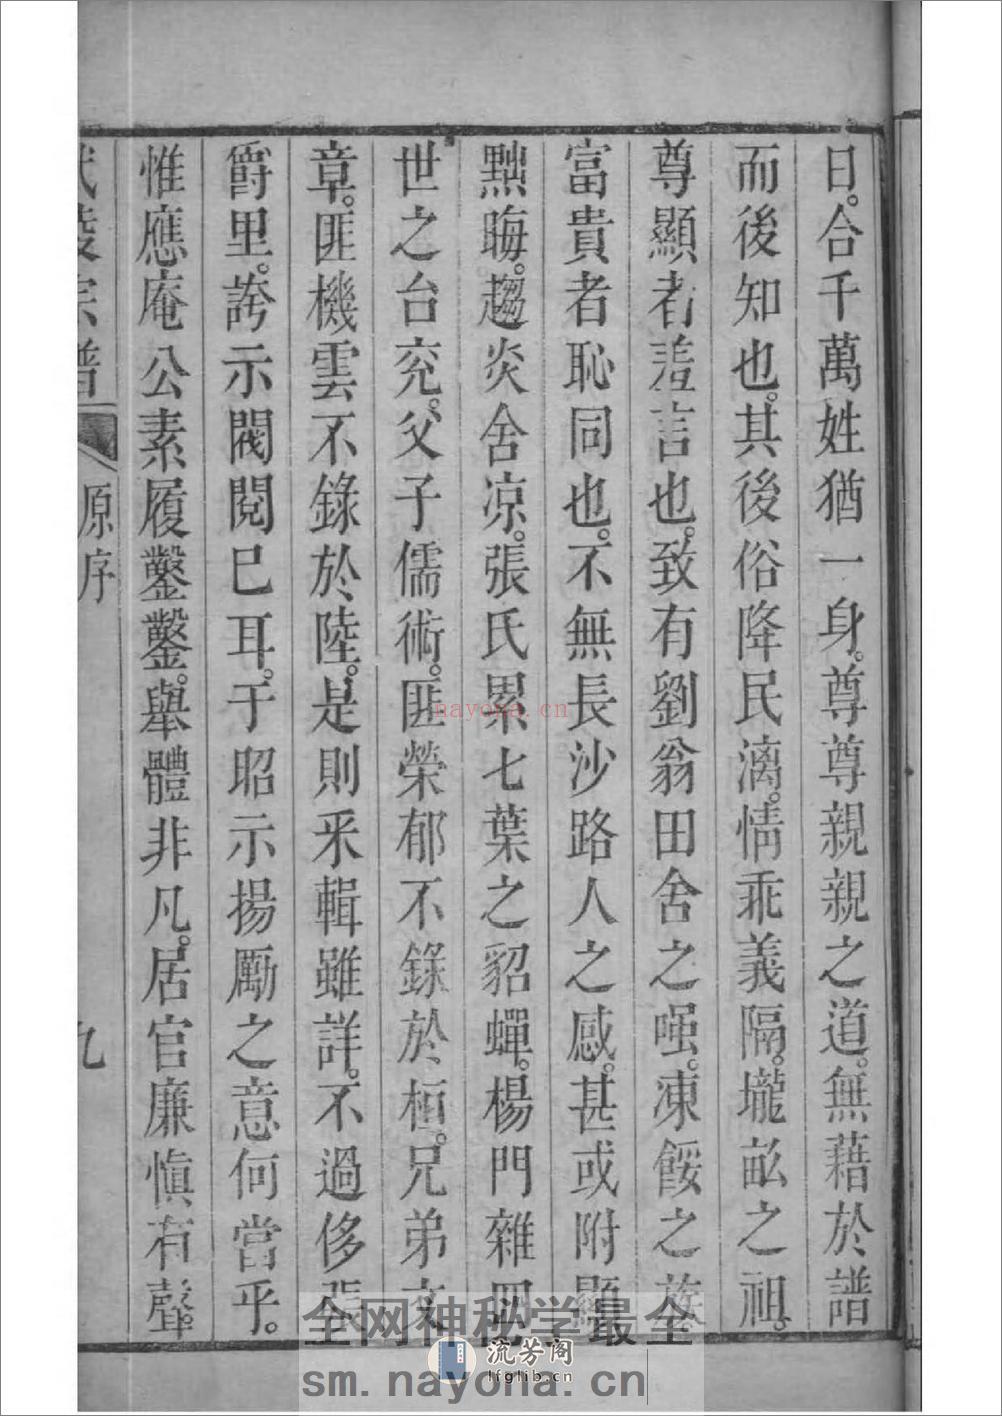 日。合千萬姓猶一身。尊尊親親之道。無藉於譜
而後知也。其後俗降民漓。情乖義隔。壠畝之祖。
尊顯者羞言也。致有劉翁田舍之嗤。凍餒之族
富貴者恥同也。不無長沙路人之感。甚或附顯
黜晦。趨炎舍凉。張氏累七葉之貂蟬。楊門雜四
世之台兖。父子儒術。匪榮郁不錄於桓。兄弟文
章。匪機雲不錄於陸。是則采輯雖詳。不過侈張
爵里。誇示閥閱巳耳。于昭示揚厲之意何當乎。
惟應庵公素履鑿鑿。舉體非凡。居官廉慎有聲。
武陵宗譜 原序 九
nayona.cn
全网神秘学最全
流芳阁
lfglib.cn
sm.nayona.cn